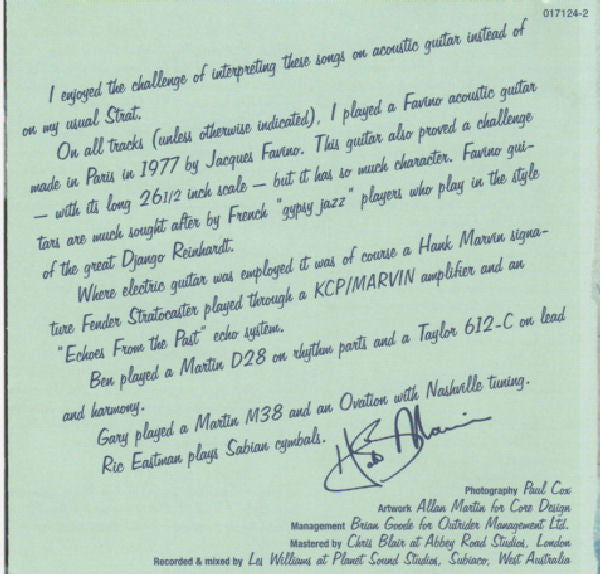 017124-2
I enjoyed the challenge of interpreting these songs on acoustic guitar instead of
on my usual Strat.
On all tracks (unless otherwise indicated), I played a Favino acoustic guitar
made in Paris in 1977 by Jacques Favino. This guitar also proved a challenge
– with its long 26 1/2 inch scale – but it has so much character. Favino gui-
tars are much sought after by French "gypsy jazz" players who play in the style
of the great Django Reinhardt.
Where electric guitar was employed it was of course a Hank Marvin signa-
ture Fender Stratocaster played through a KCP/MARVIN amplifier and an
"Echoes From the Past" echo system.
Ben played a Martin D28 on rhythm parts and a Taylor 612-C on lead
and harmony.
Gary played a Martin M38 and an Ovation with Nashville tuning.
Ric Eastman plays Sabian cymbals.
Hank Marvin
Photography Paul Cox
Artwork Allan Martin for Core Design
Management Brian Goode for Outrider Management Ltd.
Mastered by Chris Blair at Abbey Road Studios, London
Recorded & mixed by Les Williams at Planet Sound Studios, Subiaco, West Australia